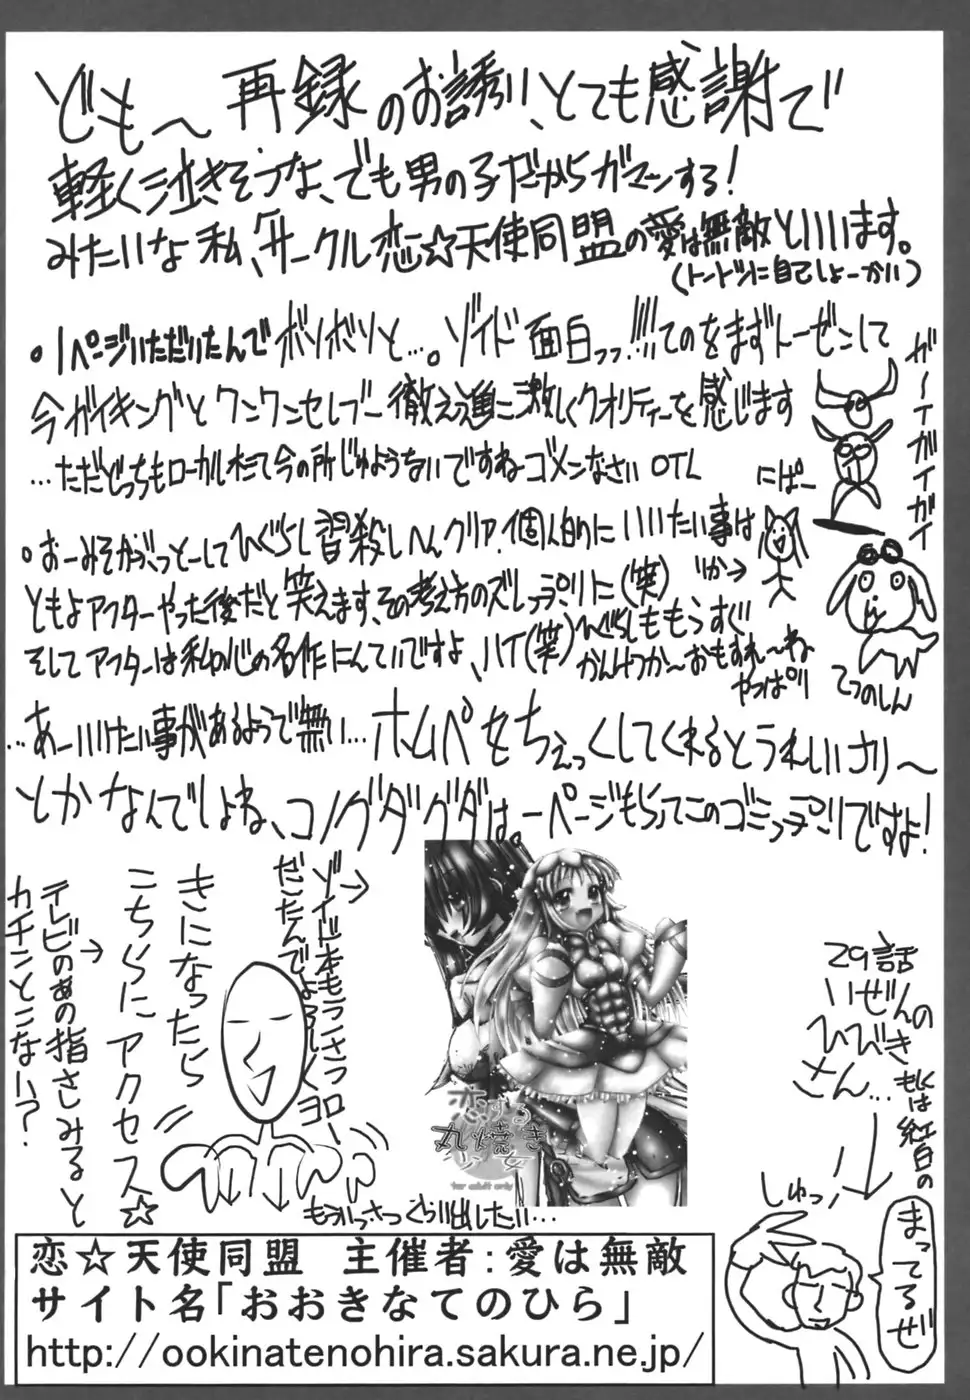 どもへ 再録のお誘い、とても感謝で
軽く泣きそうな、でも男の子だからガマンする!
みたいな私、サークル恋☆天使同盟の愛は無敵といいます。
(トートツに自己しょーかい)
・1ページいただいたんでボソボソと…。ゾイド面白っっ!!!!てのをまずトーゼンして
今ガイキングとワンワンセレプー徹えっ進に激しくクオリティーを感じます
…ただどっちもローカルすぎて今の所じゅようないですねーゴメンなさいOTL
ガーイガイガイ
にぱー
・おーみそかぶっとーしてひぐらし皆殺しへんクリア。個人的にいいたい事は
ともよアフターやった後だと笑えます、その考え方のズレっプリに(笑)
そしてアフターは私の心の名作にんていですよ、ハイ(笑)
ひぐらしももうすぐ
かんけつかーおもすれーね
やっぱり
てつのしん
…あーいいたい事があるようで無い…ホムペをちぇっくしてくれるとうれしいさりー
とかなんでしょね、コノグダグダは。一ページもらってこのゴミっプリですよ!
ゾイド本もラミラミ
だこたんでよろしくヨロー
きになったら
こちらにアクセス☆
テレビのあの指さしみると
カチンとこない?
恋する
丸焼き
乙女
for adult only
もういっさつぐらい出したい…
29話
いぜんの
ひびき
さん…
もしくは紅白の
しゅっ!
まってるぜ
恋☆天使同盟 主催者:愛は無敵
サイト名「おおきなてのひら」
http://ookinatenohira.sakura.ne.jp/